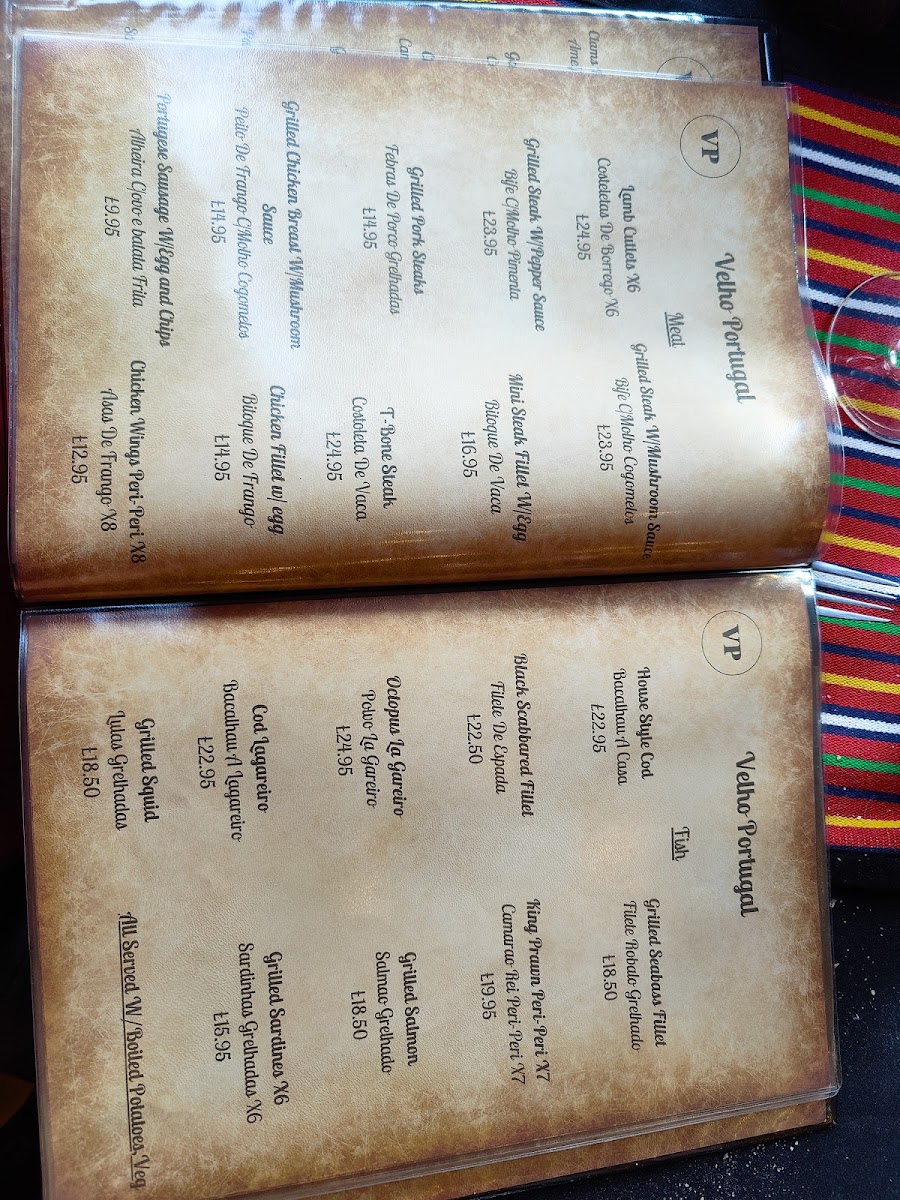 VP
Velho Portugal
Meat
Lamb Cutlets X6
Costeletas De Borrego X6
£24.95
Grilled Steak W/Mushroom Sauce
Bife C/Molho Cogomelos
£23.95
Grilled Steak W/Pepper Sauce
Bife C/Molho Pimenta
£23.95
Mini Steak Fillet W/Egg
Bitoque De Vaca
£16.95
Grilled Pork Steaks
Febras De Porco Grelhadas
£14.95
T-Bone Steak
Costoleta De Vaca
£24.95
Grilled Chicken Breast W/Mushroom
Sauce
Peito De Frango C/Molho Cogomelos
£14.95
Chicken Fillet w/ egg
Bitoque De Frango
£14.95
Portugese Sausage W/Egg and Chips
Alheira C/ovo e batata Frita
£9.95
Chicken Wings Peri-Peri X8
Asas De Frango X8
£12.95
VP
Velho Portugal
Fish
House Style Cod
Bacalhau A Casa
£22.95
Grilled Seabass Fillet
Filete Robalo Grelhado
£18.50
Black Scabbared Fillet
Filete De Espada
£22.50
King Prawn Peri-Peri X7
Camarao Rei Peri-Peri X7
£19.95
Octopus La Gareiro
Polvo La Gareiro
£24.95
Grilled Salmon
Salmao Grelhado
£18.50
Cod Lagareiro
Bacalhau A Lagareiro
£22.95
Grilled Sardines X6
Sardinhas Grelhadas X6
£15.95
Grilled Squid
Lulas Grelhadas
£18.50
All Served W/Boiled Potatoes,Veg
Clams